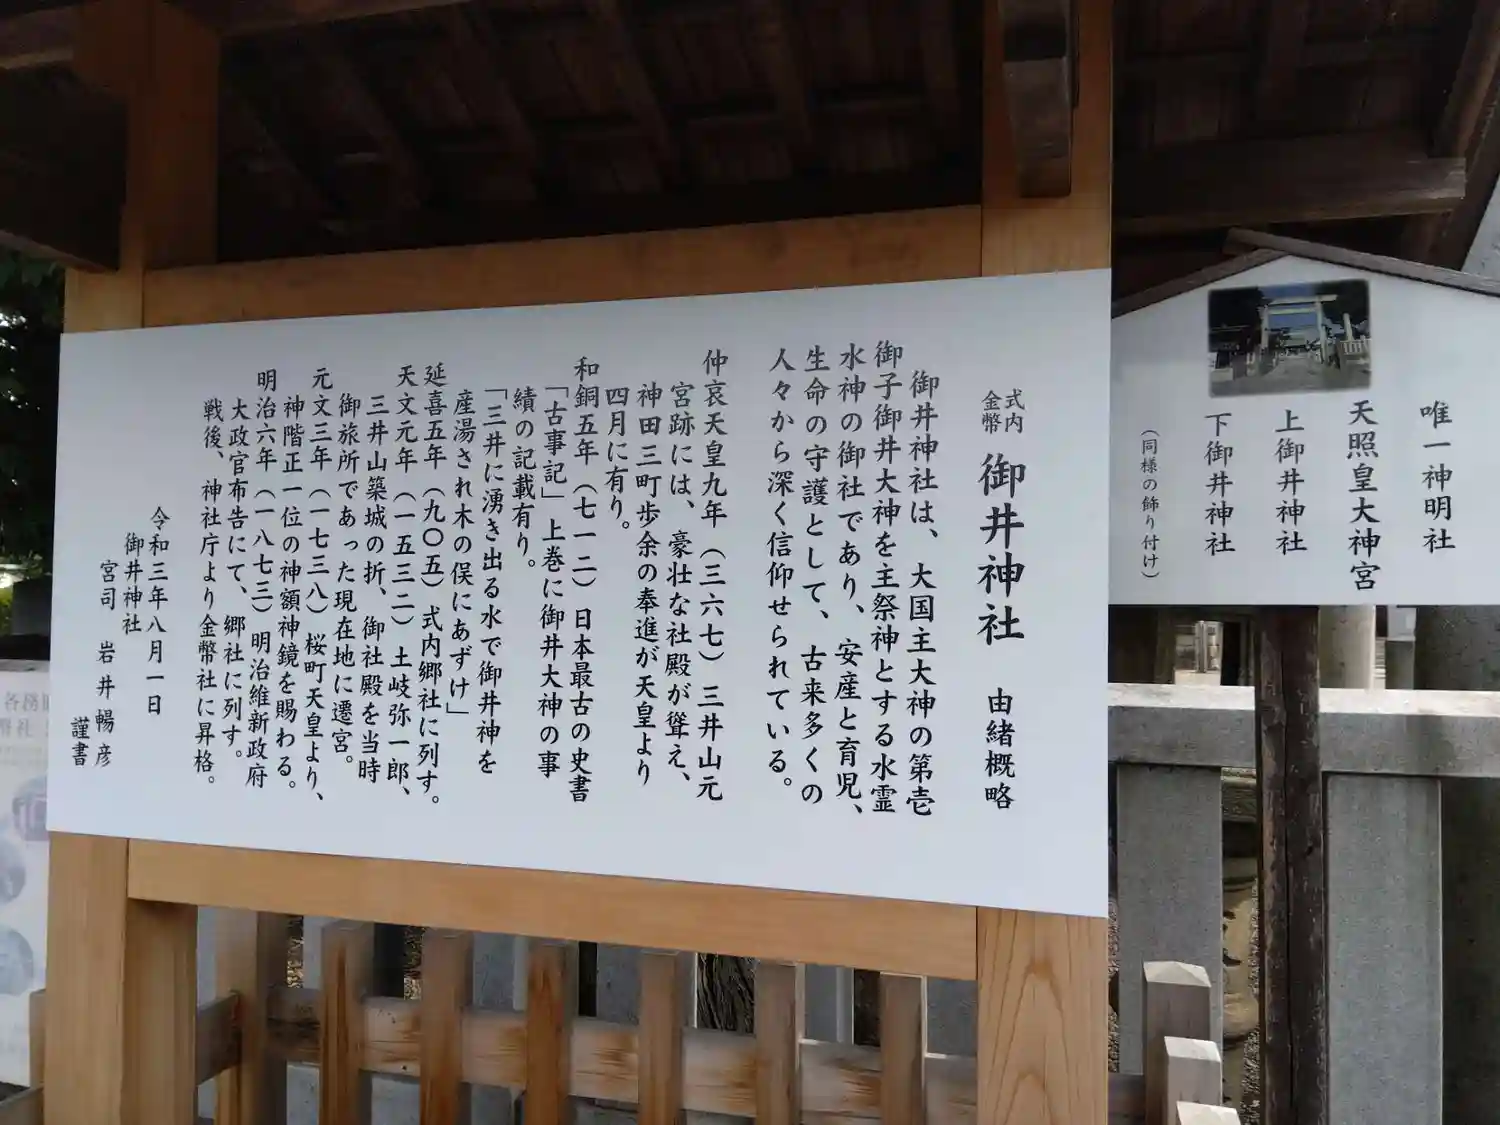 式内
金幣
御井神社　由緒概略
御井神社は、大国主大神の第壱
御子御井大神を主祭神とする水霊
水神の御社であり、安産と育児、
生命の守護として、古来多くの
人々から深く信仰せられている。
仲哀天皇九年（三六七）三井山元
宮跡には、豪壮な社殿が聳え、
神田三町歩余の奉進が天皇より
四月に有り。
和銅五年（七一二）日本最古の史書
「古事記」上巻に御井大神の事
績の記載有り。
「三井に湧き出る水で御井神を
産湯され木の俣にあずけ」
延喜五年（九〇五）式内郷社に列す。
天文元年（一五三二）土岐弥一郎、
三井山築城の折、御社殿を当時
御旅所であった現在地に遷宮。
元文三年（一七三八）桜町天皇より、
神階正一位の神額神鏡を賜わる。
明治六年（一八七三）明治維新政府
大政官布告にて、郷社に列す。
戦後、神社庁より金幣社に昇格。
令和三年八月一日
御井神社
宮司　岩井暢彦
謹書
唯一神明社
天照皇大神宮
上御井神社
下御井神社
（同様の飾り付け）
各務
幣社